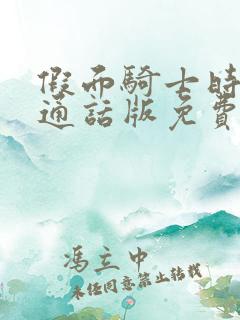 假面騎士時
通話版免費
馮立中
未經同意禁止轉載